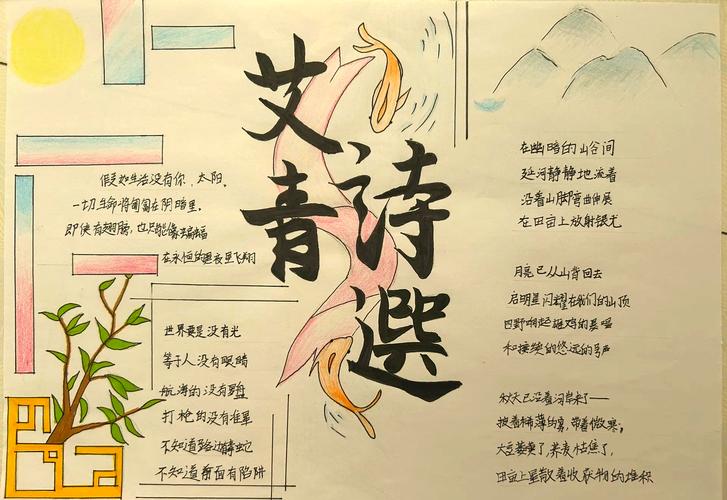 艾青
诗選
假如生活没有你，太阳，
一切生命将匍匐在阴暗里，
即使有翅膀，也只能像蝙蝠
在永恒的黑夜里飞翔
世界要是没有光
等于人没有眼睛
航海的没有罗盘
打枪的没有准星
不知道路边有毒蛇
不知道前面有陷阱
在幽暗的山谷间
延河静静地流着
沿着山脚弯曲伸展
在田亩上放射银光
月亮已从山背回去
启明星闪耀在我们的山顶
四野响起雄鸡的晨唱
和接续的悠远的号声
秋天已沿着河岸来了——
披着稀薄的雾，带着微寒；
大豆萎黄了，荞麦枯焦了，
田亩上星散着收获物的堆积